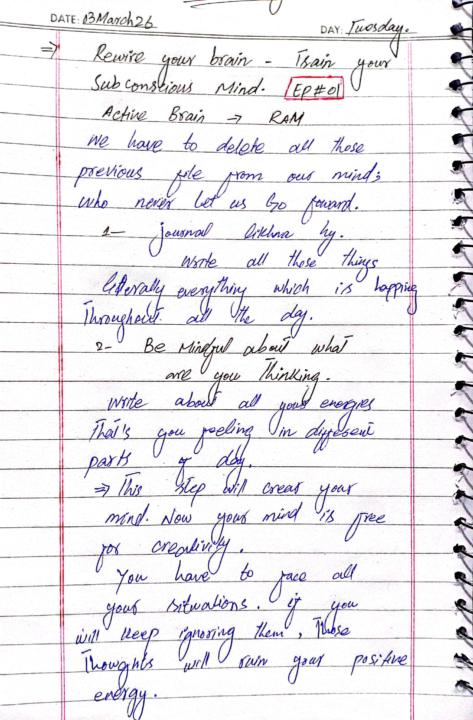 DATE: 03March26
DAY: Tuosday.
⇒ Rewire your brain - Train your
Subconscious Mind. EP#01
Active Brain → RAM
We have to delete all those
previous file from our mind's
who never let us Go forward.
1- journal likhna hy.
Write all those things
literally everything which is happing
Throughout all the day.
2- Be Mindful about what
are you Thinking.
Write about all your energies
That's you feeling in different
parts of day.
⇒ This step will crear your
mind. Now your mind is free
for creativity.
You have to face all
your situations. if you
will keep ignoring them, Those
Thoughts will ruin your positive
energy.